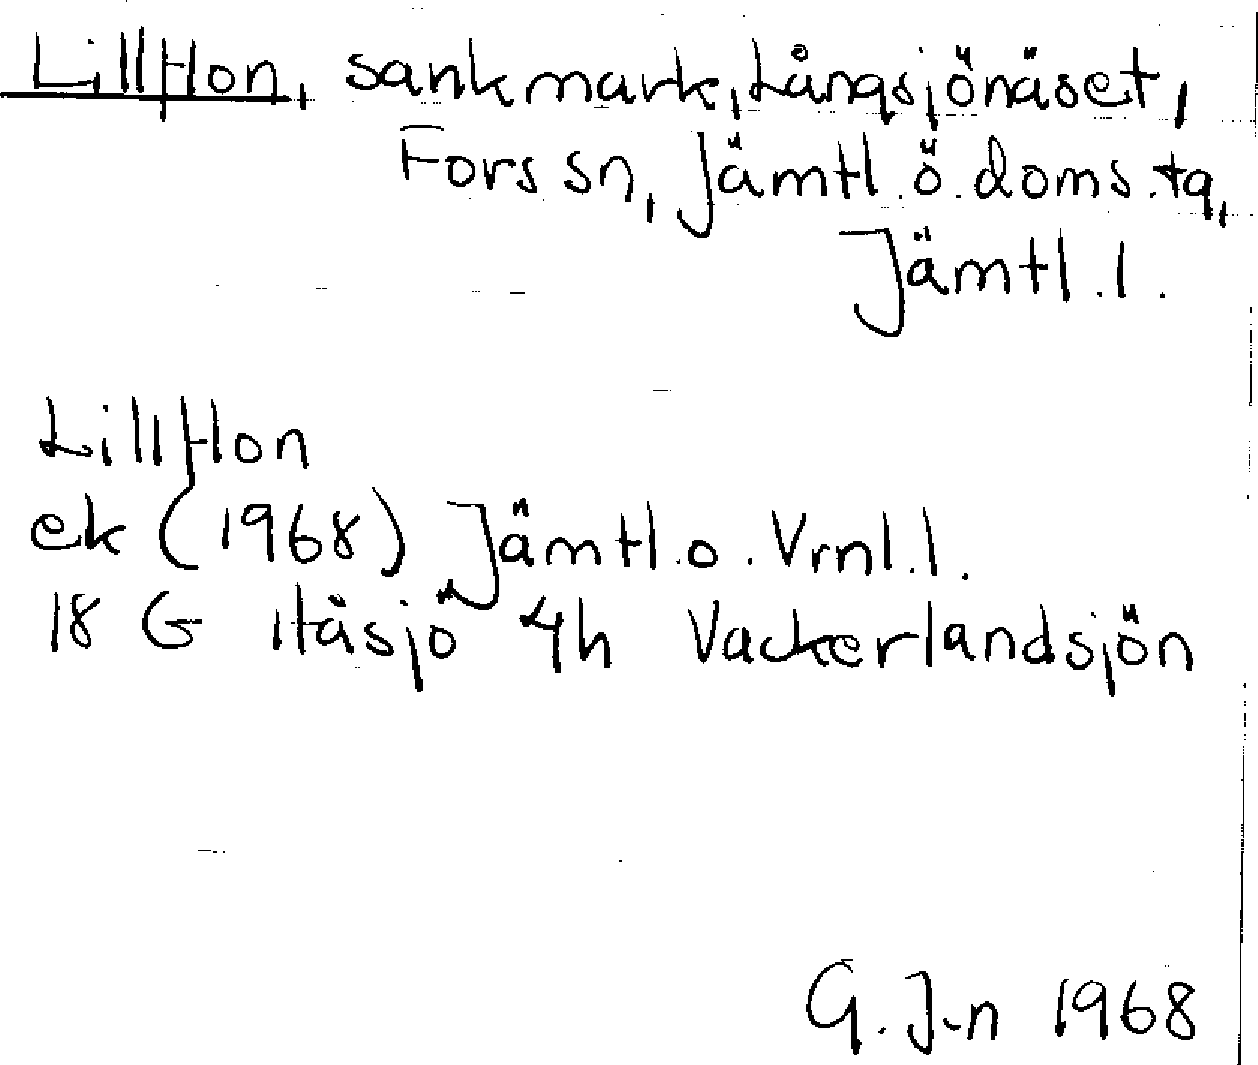 Lillflon, sankmark, Långsjönäset,
Fors sn, Jämtl.ö.doms.tg,
Jämtl.l.
Lillflon
ek (1968) Jämtl.o.Vrnl.l.
18 G Håsjö 4h Vackerlandsjön
G. J-n 1968